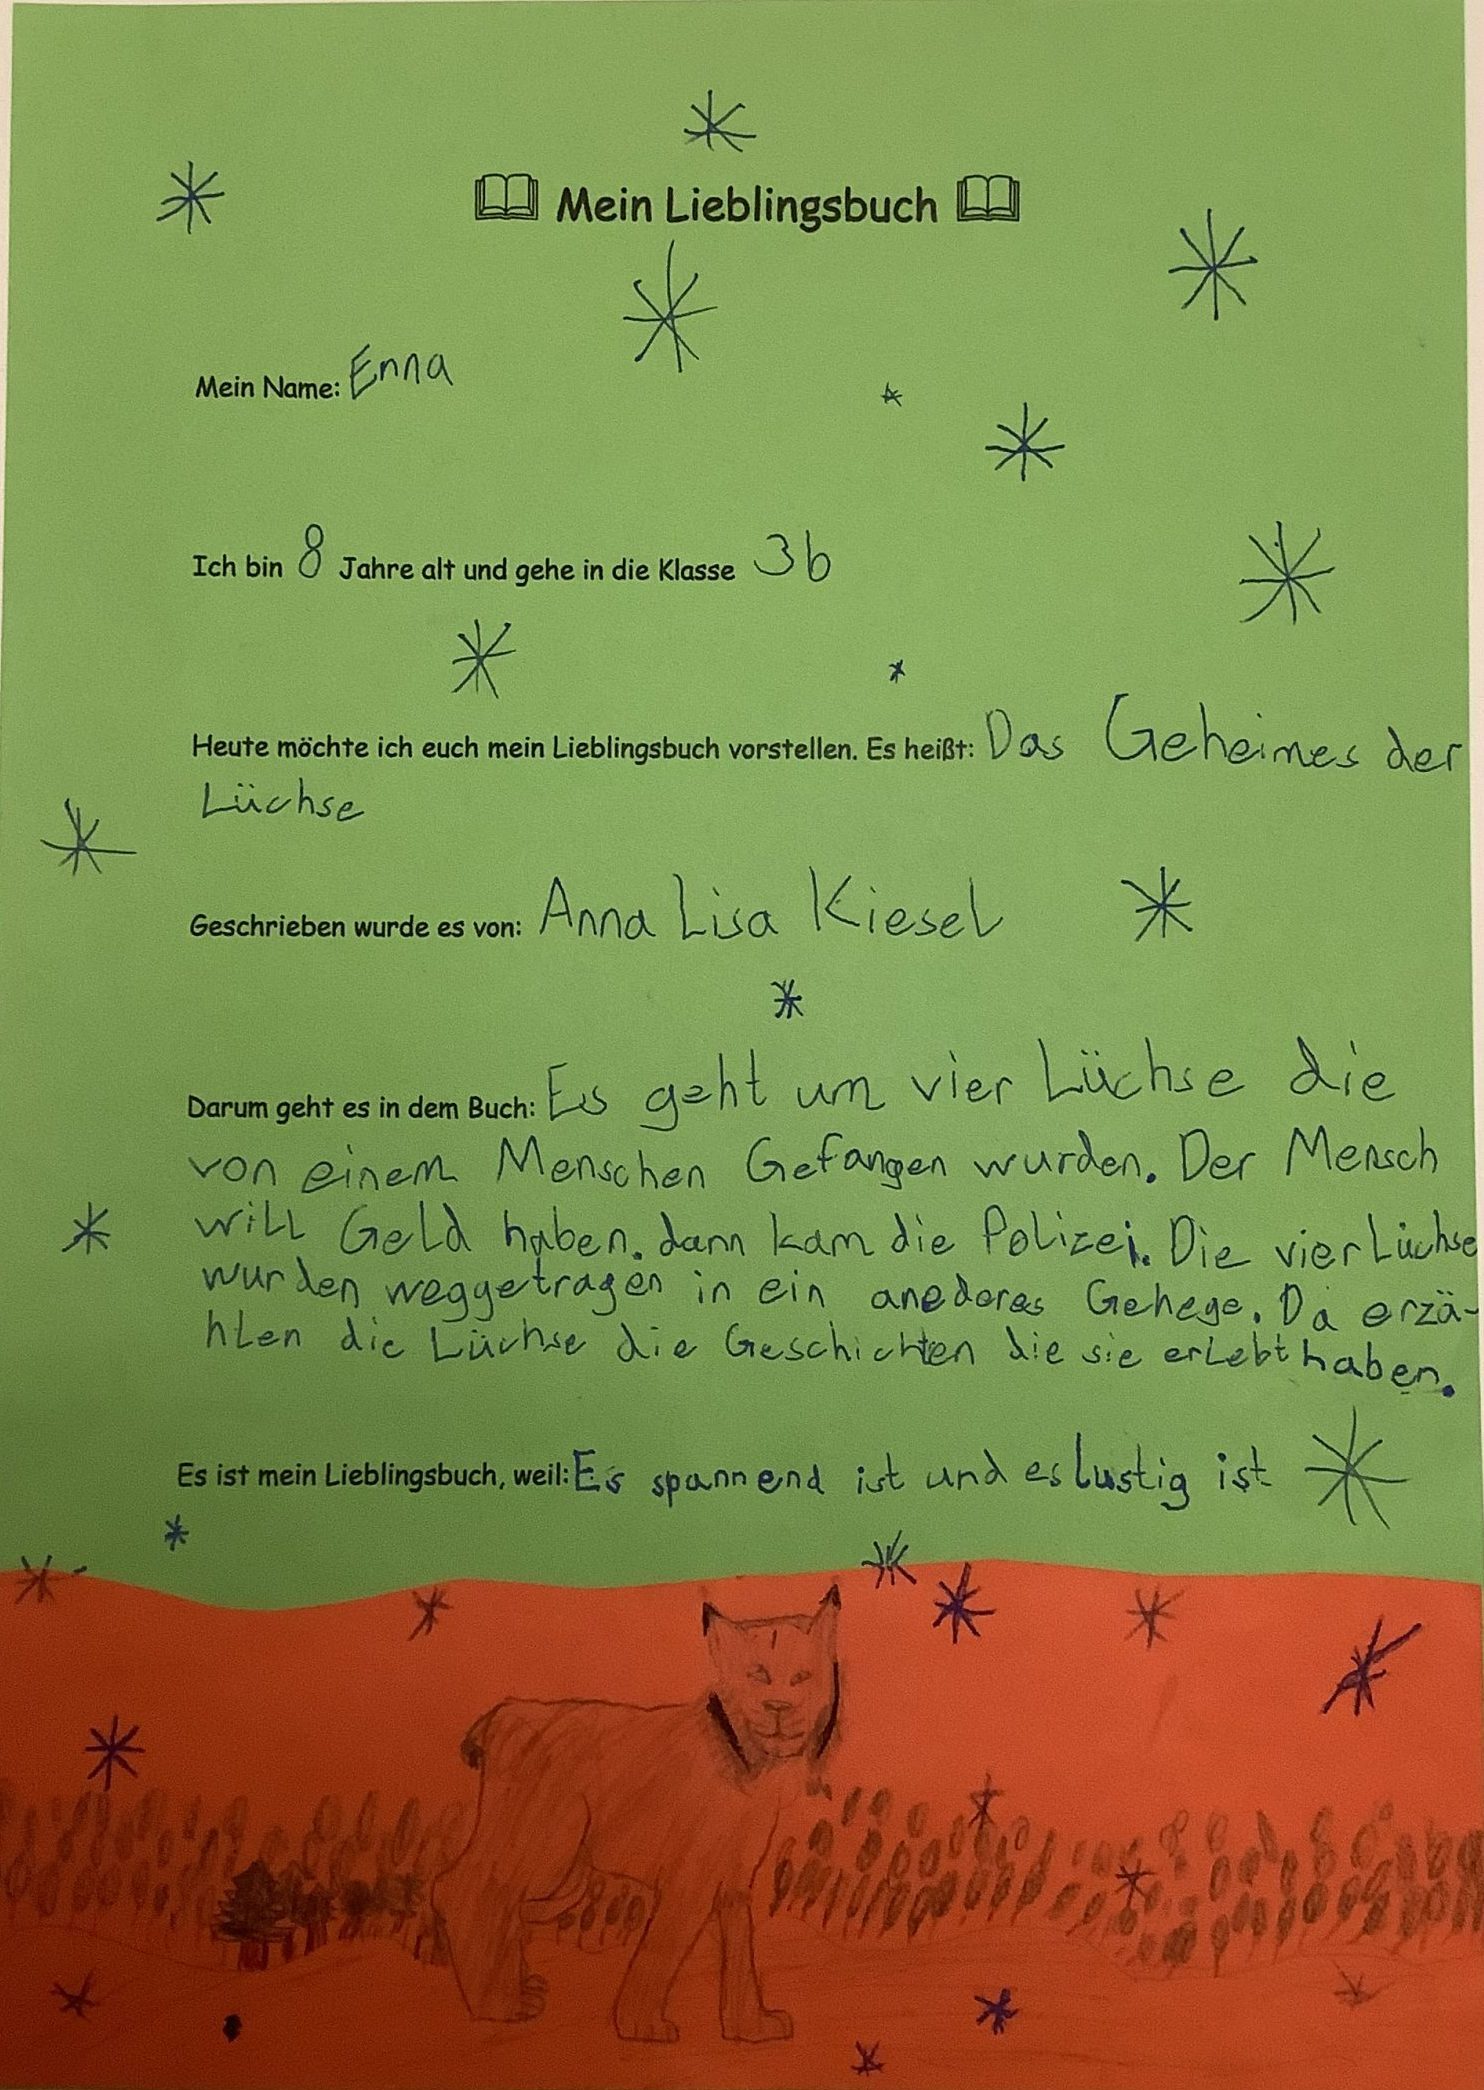 Mein Lieblingsbuch
Mein Name: Enna
Ich bin 8 Jahre alt und gehe in die Klasse 3b
Heute möchte ich euch mein Lieblingsbuch vorstellen. Es heißt: Das Geheimes der
Lüchse
Geschrieben wurde es von: Anna Lisa Kiesel
Darum geht es in dem Buch: Es geht um vier Lüchse die
von einem Menschen Gefangen wurden. Der Mensch
will Geld haben. dann kam die Polizei. Die vier Lüchse
wurden weggetragen in ein anederes Gehege. Da erzä-
hlen die Lüchse die Geschichten die sie erlebt haben.
Es ist mein Lieblingsbuch, weil: Es spannend ist und es lustig ist